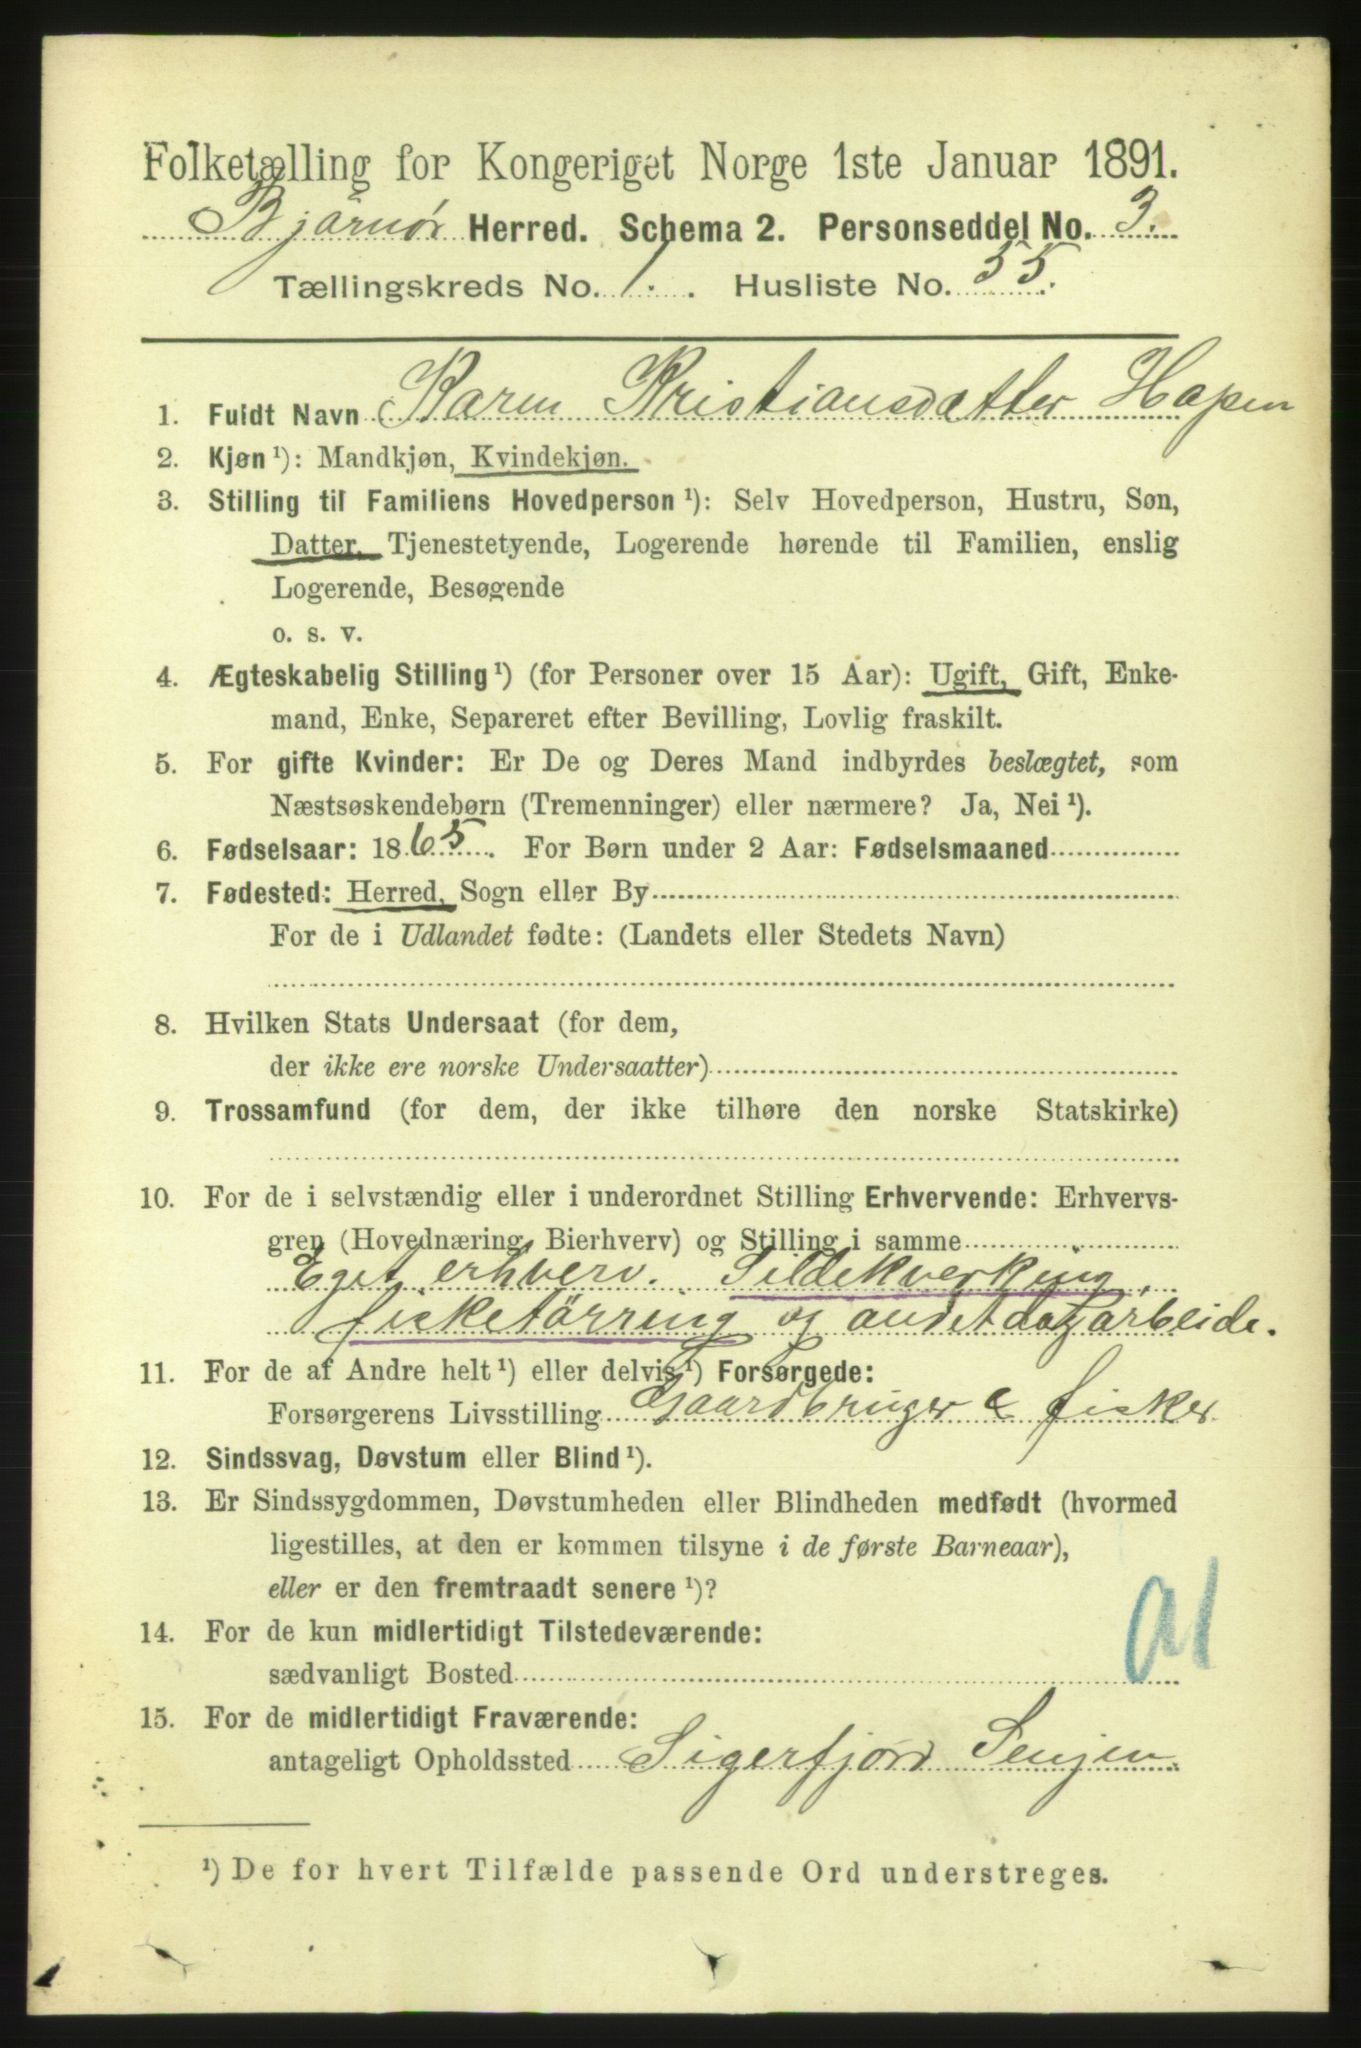 Folketælling for Kongeriget Norge 1ste Januar 1891.
Bjørnør Herred. Schema 2. Personseddel No. 3.
Tællingskreds No. 1. Husliste No. 55.
1. Fuldt Navn Karen Kristiansdatter Hopen
2. Kjøn ¹): Mandkjøn, Kvindekjøn.
3. Stilling til Familiens Hovedperson ¹): Selv Hovedperson, Hustru, Søn,
Datter, Tjenestetyende, Logerende hørende til Familien, enslig
Logerende, Besøgende
o. s. v.
4. Ægteskabelig Stilling ¹) (for Personer over 15 Aar): Ugift, Gift, Enke-
mand, Enke, Separeret efter Bevilling, Lovlig fraskilt.
5. For gifte Kvinder: Er De og Deres Mand indbyrdes beslægtet, som
Næstsøskendebørn (Tremenninger) eller nærmere? Ja, Nei ¹).
6. Fødselsaar: 1865. For Børn under 2 Aar: Fødselsmaaned
7. Fødested: Herred, Sogn eller By
For de i Udlandet fødte: (Landets eller Stedets Navn)
8. Hvilken Stats Undersaat (for dem,
der ikke ere norske Undersaatter)
9. Trossamfund (for dem, der ikke tilhøre den norske Statskirke)
10. For de i selvstændig eller i underordnet Stilling Erhvervende: Erhvervs-
gren (Hovednæring, Bierhverv) og Stilling i samme
Eget erhverv. Sildekverking,
fisketørring og andet dagarbeide.
11. For de af Andre helt ¹) eller delvis ¹) Forsørgede:
Forsørgerens Livsstilling Gaardbruger & fisker.
12. Sindssvag, Døvstum eller Blind ¹).
13. Er Sindssygdommen, Døvstumheden eller Blindheden medfødt (hvormed
ligestilles, at den er kommen tilsyne i de første Barneaar),
eller er den fremtraadt senere ¹)?
14. For de kun midlertidigt Tilstedeværende:
sædvanligt Bosted
15. For de midlertidigt Fraværende:
antageligt Opholdssted Sigerfjord Senjen.
¹) De for hvert Tilfælde passende Ord understreges.